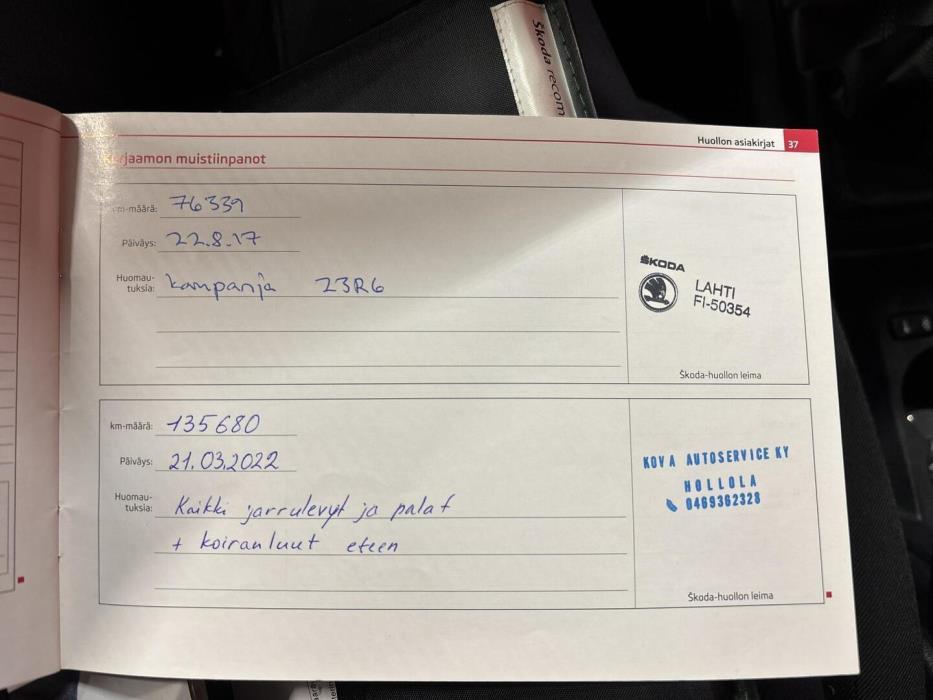 Škoda recom
Huollon asiakirjat 37
Korjaamon muistiinpanot
km-määrä: 76339
Päiväys: 22.8.17
Huomau-
tuksia: kampanja 23R6
ŠKODA
LAHTI
FI-50354
Škoda-huollon leima
km-määrä: 135680
Päiväys: 21.03.2022
Huomau-
tuksia: Kaikki jarrulevyt ja palat
+ koiranluut eteen
KOVA AUTOSERVICE KY
HOLLOLA
0469362328
Škoda-huollon leima